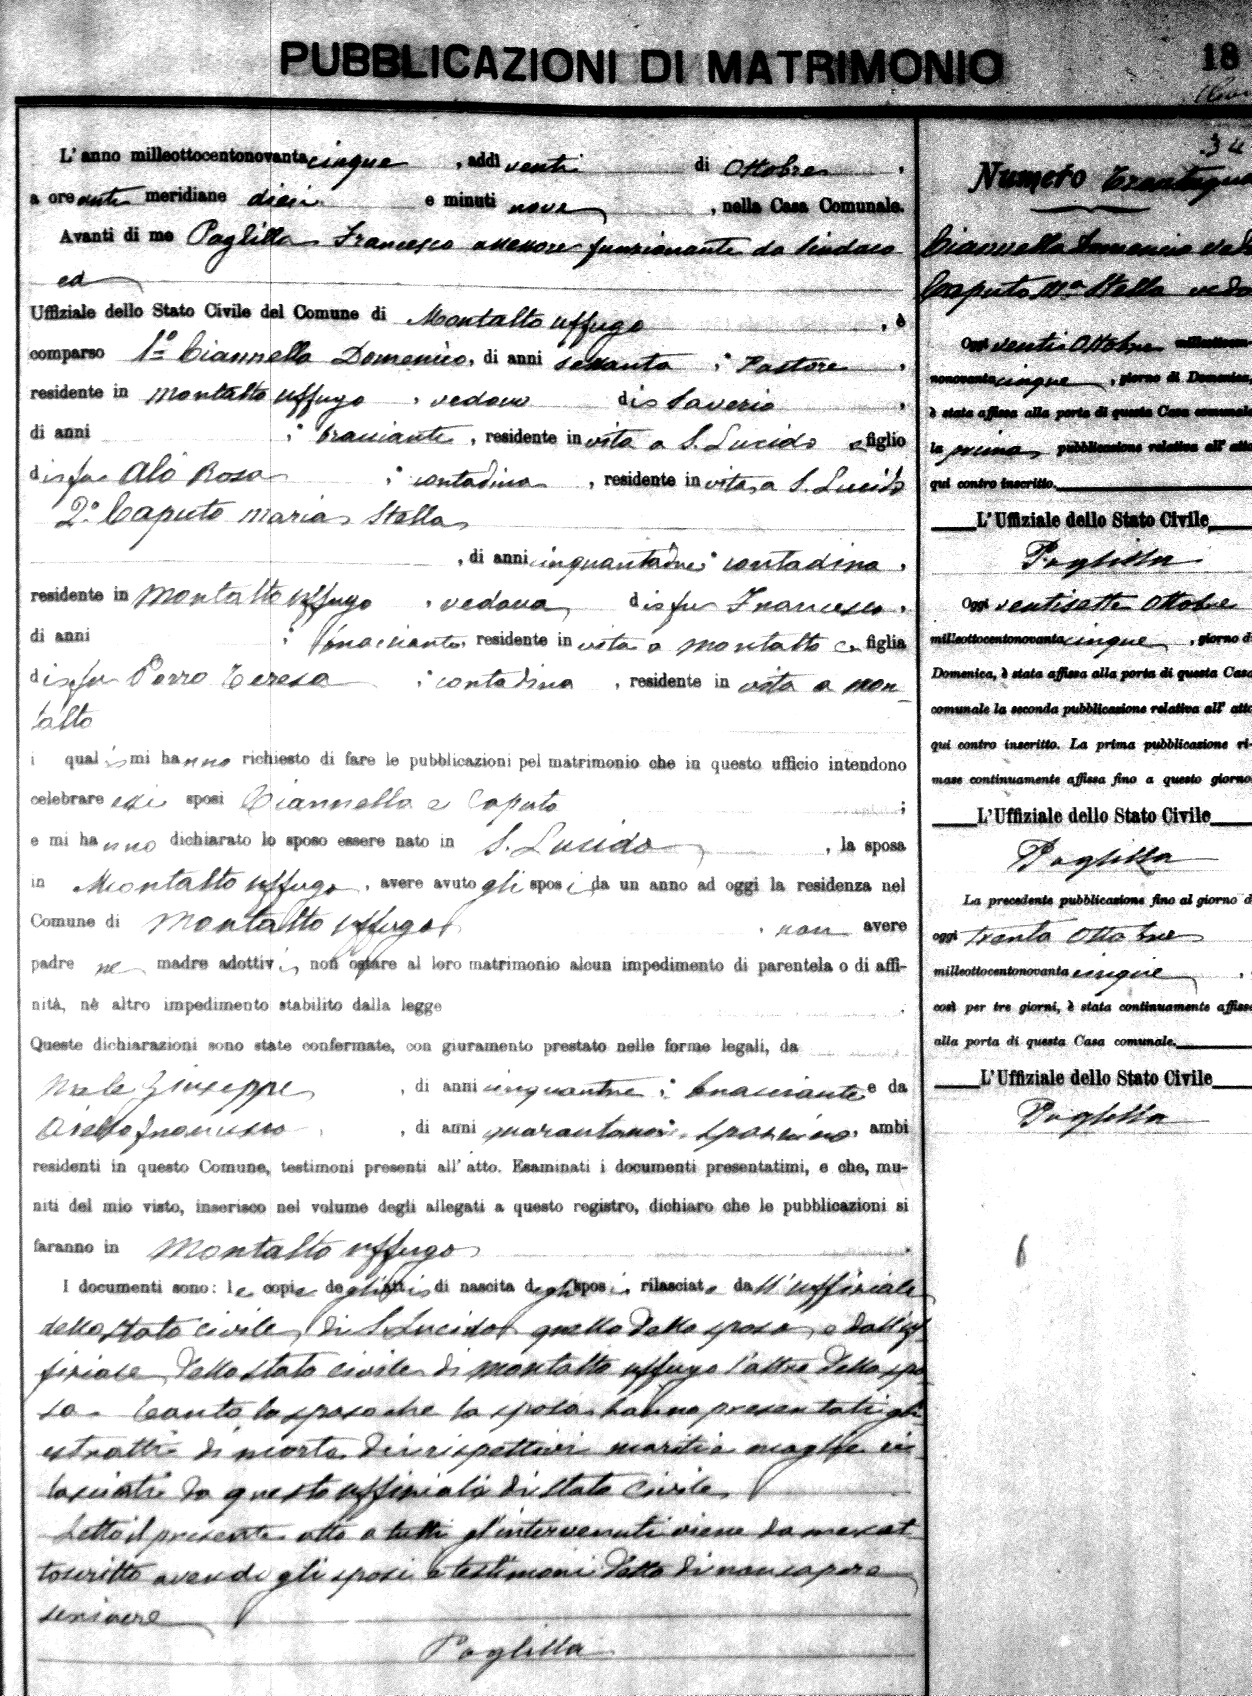 PUBBLICAZIONI DI MATRIMONIO
18
L'anno milleottocentonovantacinque, addì venti di Ottobre,
a ore anti meridiane dieci e minuti nove, nella Casa Comunale.
Avanti di me Paglilla Francesco assessore funzionante da Sindaco
ed
Uffiziale dello Stato Civile del Comune di Montalto Uffugo, è
comparso 1º Ciannella Domenico, di anni sessanta; Pastore,
residente in Montalto Uffugo, vedovo di Saverio,
di anni ; bracciante, residente in vita a S. Lucido e figlio
di fu Alò Rosa ; contadina, residente in vita a S. Lucido
2º Caputo Maria Stella
, di anni cinquantadue; contadina,
residente in Montalto Uffugo, vedova di fu Francesco,
di anni ; bracciante, residente in vita a Montalto e figlia
di fu Porro Teresa ; contadina, residente in vita a Mon-
talto
i quali mi hanno richiesto di fare le pubblicazioni pel matrimonio che in questo ufficio intendono
celebrare essi sposi Ciannella e Caputo ;
e mi hanno dichiarato lo sposo essere nato in S. Lucido, la sposa
in Montalto Uffugo, avere avuto gli sposi da un anno ad oggi la residenza nel
Comune di Montalto Uffugo, non avere
padre ne madre adottivi, non ostare al loro matrimonio alcun impedimento di parentela o di affi-
nità, nè altro impedimento stabilito dalla legge.
Queste dichiarazioni sono state confermate, con giuramento prestato nelle forme legali, da
Giuseppe, di anni cinquantatre; bracciante e da
Aiello Francesco, di anni ambi
residenti in questo Comune, testimoni presenti all'atto. Esaminati i documenti presentatimi, e che, mu-
niti del mio visto, inserisco nel volume degli allegati a questo registro, dichiaro che le pubblicazioni si
faranno in Montalto Uffugo.
I documenti sono: le copie degli atti di nascita degli sposi rilasciate dall'uffiziale
dello stato civile di S. Lucido quella dello sposo, e dall'uf-
fiziale dello stato civile di Montalto Uffugo l'altra della spo
sa. Tanto lo sposo che la sposa hanno presentati gli
estratti di morte dei rispettivi mariti e moglie ri-
lasciati da questo uffiziale di Stato Civile
Letto il presente atto a tutti gl'intervenuti viene da me sot-
toscritto avendo gli sposi e testimoni detto di non sapere
scrivere
Paglilla
34
Numero
Ciannella Domenico
Caputo Mª Stella
Oggi venti Ottobre milleottocen-
nonovantacinque, giorno di Domenica,
è stata affissa alla porta di questa Casa comunale
la prima pubblicazione relativa all'atto
qui contro inscritto.
L'Uffiziale dello Stato Civile
Paglilla
Oggi ventisette Ottobre
milleottocentonovantacinque, giorno di
Domenica, è stata affissa alla porta di questa Casa
comunale la seconda pubblicazione relativa all'atto
qui contro inscritto. La prima pubblicazione ri-
mase continuamente affissa fino a questo giorno.
L'Uffiziale dello Stato Civile
Paglilla
La precedente pubblicazione fino al giorno d
oggi trenta Ottobre
milleottocentonovantacinque,
così per tre giorni, è stata continuamente affissa
alla porta di questa Casa comunale.
L'Uffiziale dello Stato Civile
Paglilla